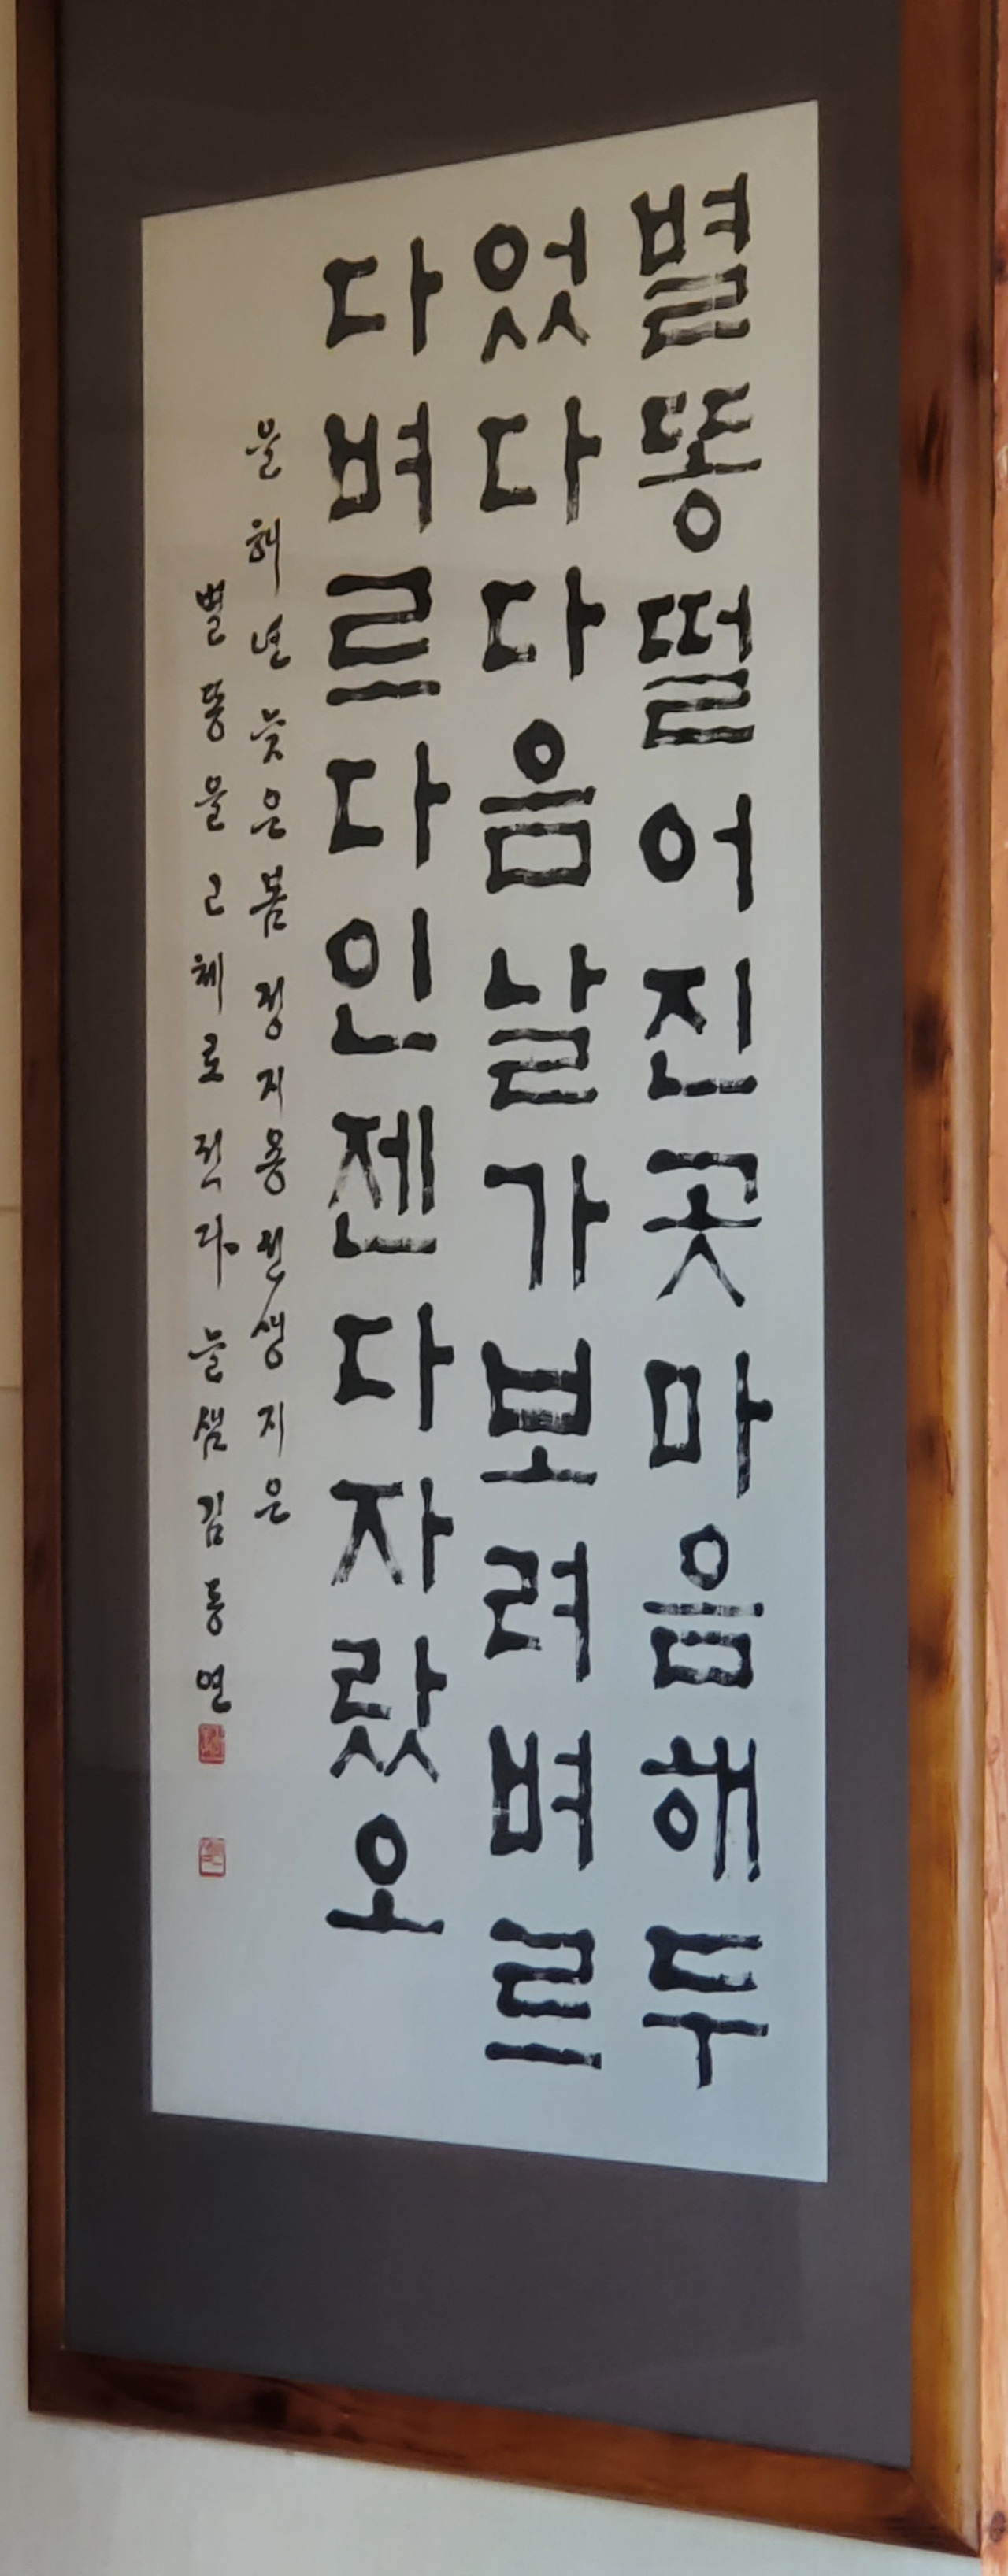 별똥떨어진곳마음해두
었다다음날가보려벼르
다벼르다인젠다자랐오
을해년늦은봄정지용선생지은
별똥을고체로적다 늘샘김동연